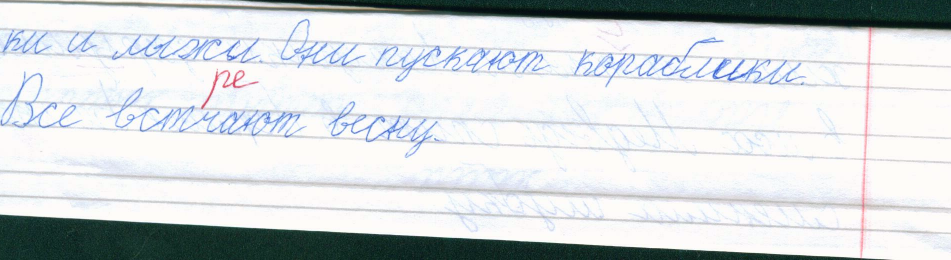 ки и лыжи. Они пускают кораблики.
ре
Все встчают весну.